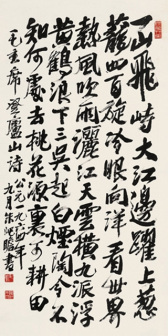 一山飛峙大江邊躍上葱
蘢四百旋冷眼向洋看世界
熱風吹雨灑江天雲橫九派浮
黄鶴浪下三吴起白烟陶令不
知何處去桃花源裏可耕田
毛主席登廬山詩 公元一九年
九月朱書